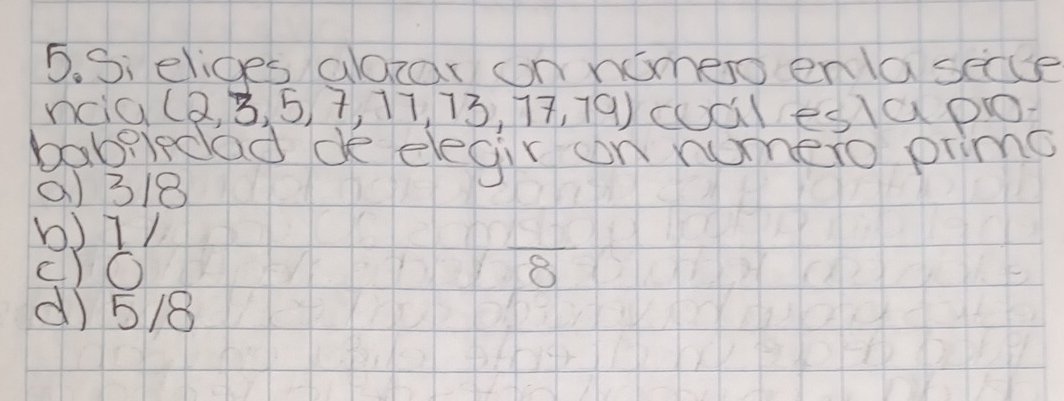 5. Si eliges alazar un número en la secue
ncia (2, 3, 5, 7, 11, 13, 17, 19) cual es la pro-
babilidad de elegir un numero primo
a) 3/8
b) 1/
c) 0
8
d) 5/8